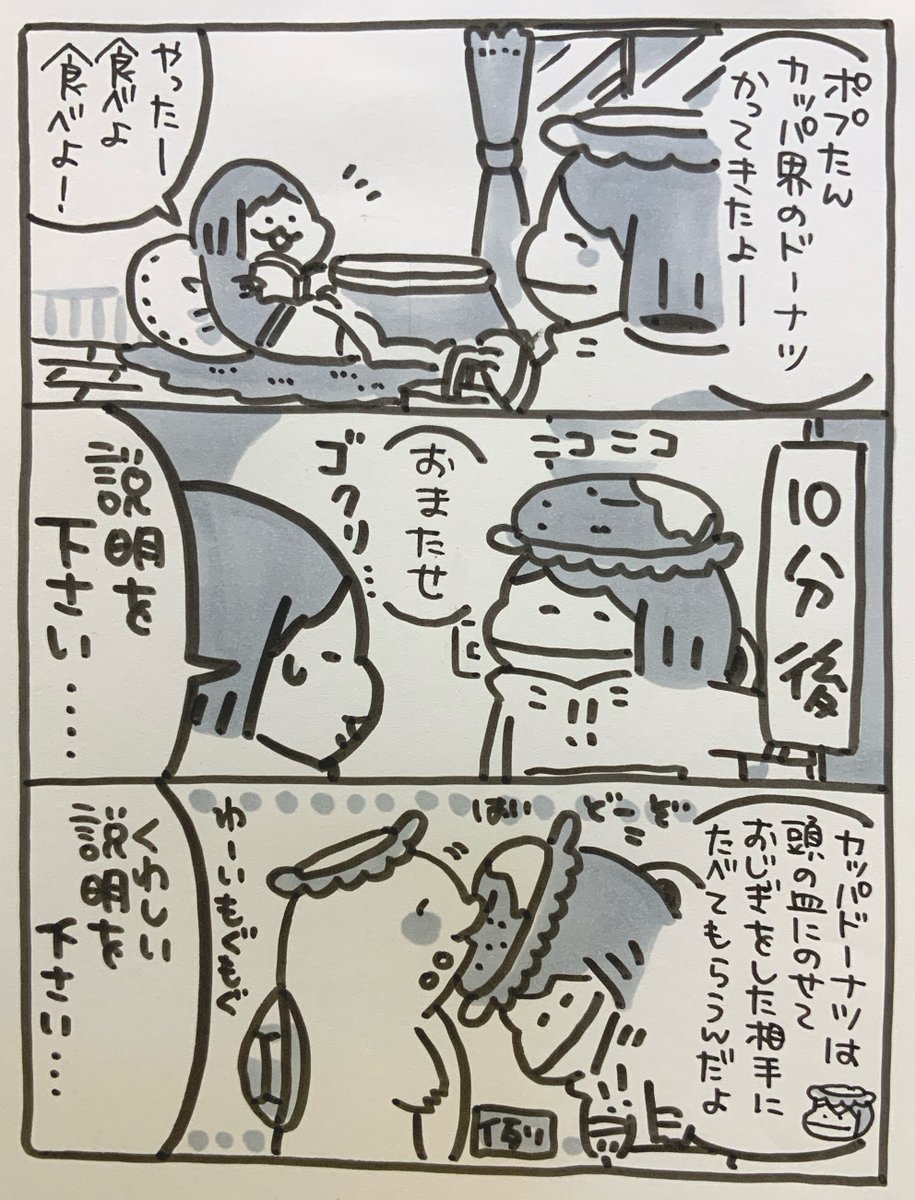 ポプたん
カッパ界のドーナツ
かってきたよー
やったー
食べよ
食べよ！
10分後
ニコニコ
おまたせ
ゴクリ…
説明を
下さい‥‥
カッパドーナツは
頭の皿にのせて
おじぎをした相手に
たべてもらうんだよ
どーぞ
はい
わーいもぐもぐ
例
くわしい
説明を
下さい…